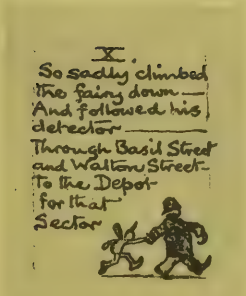 X.
So sadly climbed
the fairy down —
And followed his
detector —
Through Basil Street
and Walton Street —
To the Depot
for that
Sector